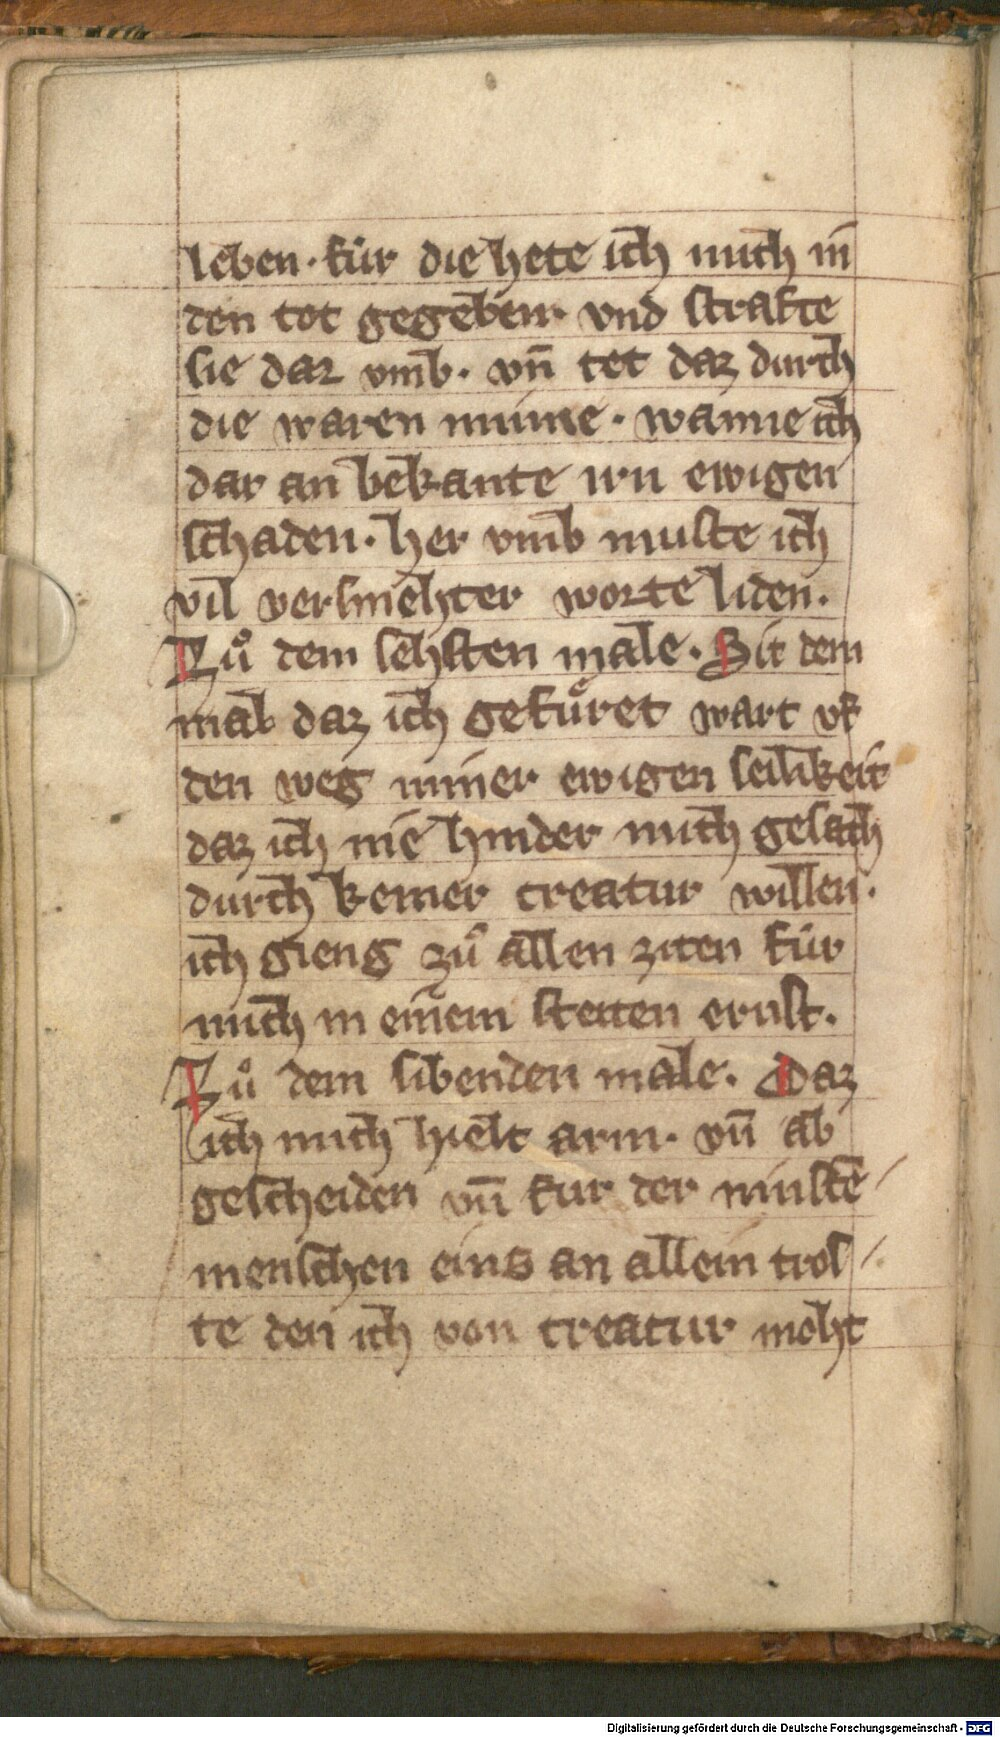 leben · für die hete ich mich in
den tot gegeben · vnd strafte
sie dar vmb · vn̄ tet daz durch
die waren minne · wanne ich
dar an bekante irn ewigen
schaden · her vmb muste ich
vil versmehter worte liden ·
Zů dem sehsten male · Sit dem
mal daz ich gefůret wart vf
den weg miner ewigen selikeit
daz ich nie hinder mich gesach
durch keiner creatur willen ·
ich gieng zů allen ziten für
mich in einem steiten ernst ·
Zů dem sibenden male · Daz
ich mich hielt arm · vn̄ ab
gescheiden vn̄ fur der minstē
menschen eins an allein tros /
te den ich von creatur moht
Digitalisierung gefördert durch die Deutsche Forschungsgemeinschaft - DFG